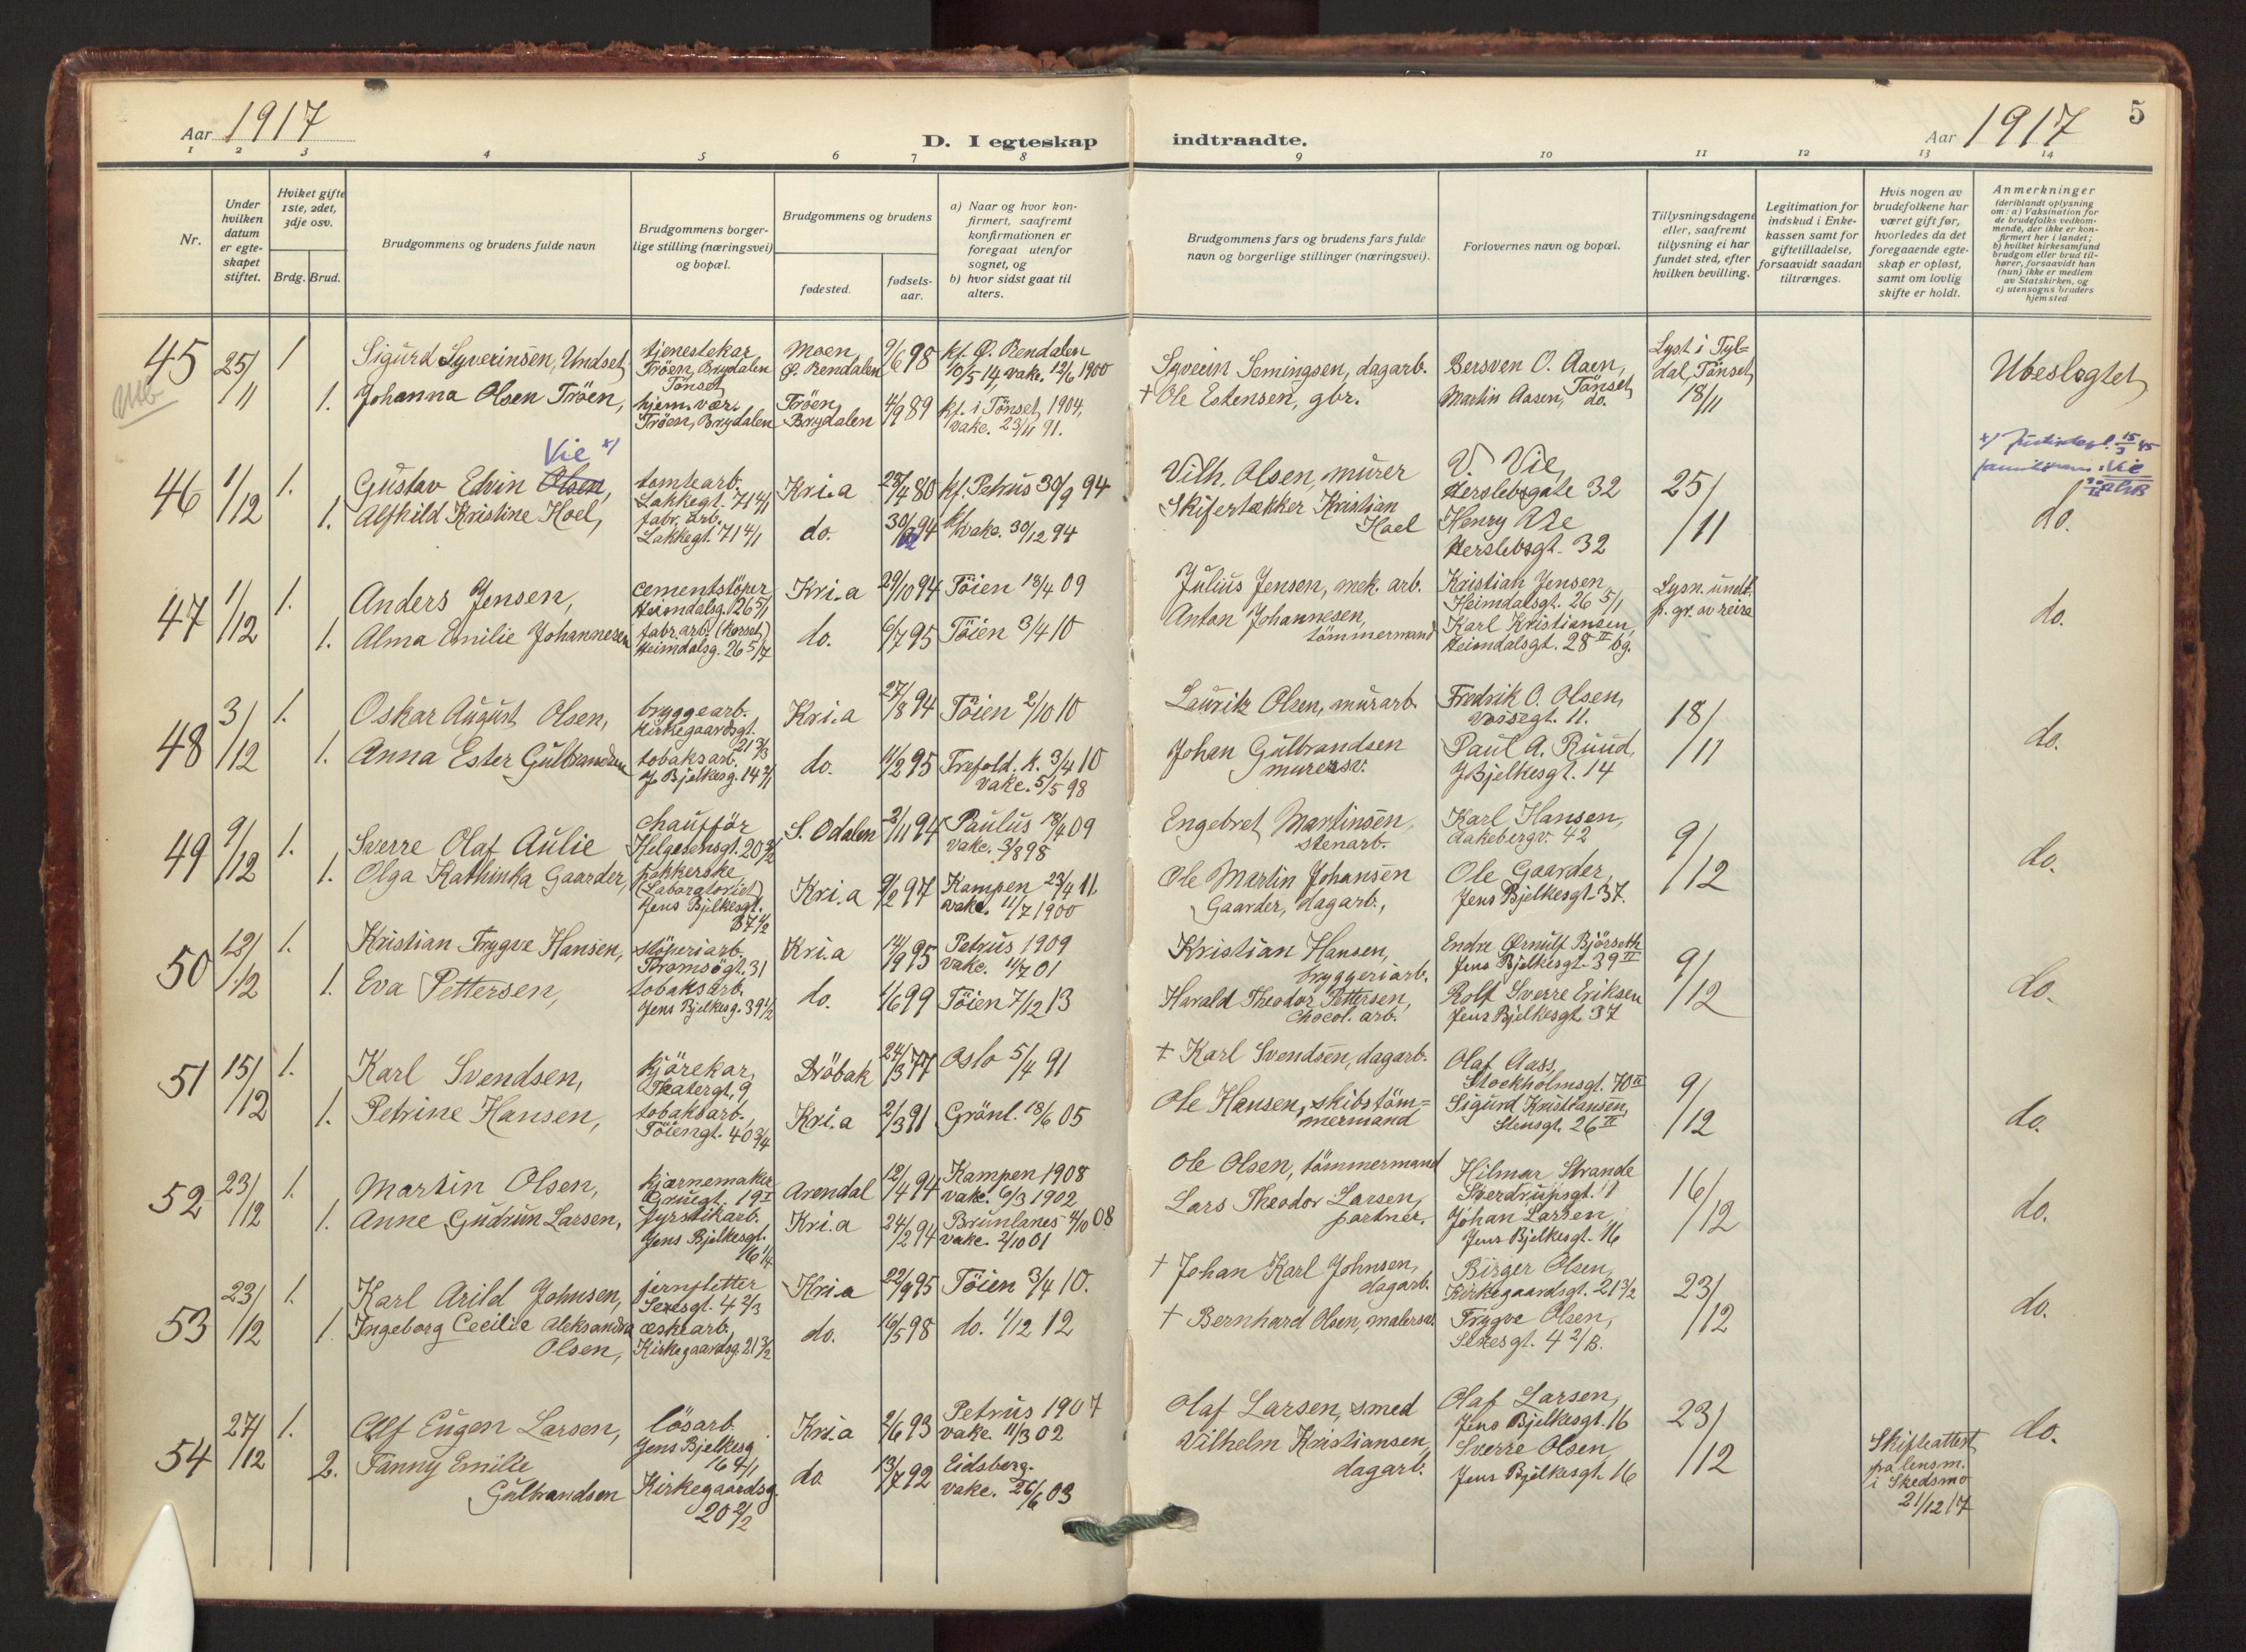 Aar 1917
D. I egteskap
indtraadte.
Aar 1917
5
1 2 3 4 5 6 7 8 9 10 11 12 13 14
Nr.
Under hvilken datum er egteskapet stiftet.
Hvilket gifte 1ste, 2det, 3dje osv.
Brdg. Brud.
Brudgommens og brudens fulde navn
Brudgommens borgerlige stilling (næringsvei) og bopæl.
Brudgommens og brudens
fødested.
fødselsaar.
a) Naar og hvor konfirmert, saafremt konfirmationen er foregaat utenfor sognet, og
b) hvor sidst gaat til alters.
Brudgommens fars og brudens fars fulde navn og borgerlige stillinger (næringsvei).
Forlovernes navn og bopæl.
Tillysningsdagene eller, saafremt tillysning ei har fundet sted, efter hvilken bevilling.
Legitimation for indskud i Enkekassen samt for giftetilladelse, forsaavidt saadan tiltrænges.
Hvis nogen av brudefolkene har været gift før, hvorledes da det foregaaende egteskap er opløst, samt om lovlig skifte er holdt.
Anmerkninger (deriblandt oplysning om: a) Vaksination for de brudefolks vedkommende, der ikke er konfirmert her i landet; b) hvilket kirkesamfund brudgom eller brud tilhører, forsaavidt han (hun) ikke er medlem av Statskirken, og c) utensogns bruders hjemsted
45 25/11 1 Sigurd Syverinsen, Undset, tjenestekar Tröen, Brydalen Tönset Moen Ø. Rendalen 9/6 98 kf. Ø. Rendalen 10/5 14, vakc. 12/6 1900
1. Johanna Olsen Tröen, hjem. vær. Tröen, Brydalen Tröen, Brydalen 4/9 89 kf. i Tönset 1904, vakc. 23/11 91.
Syverin Semingsen, dagarb. Bersven O. Aaen, Tönset Lyst i Tyldal, Tönset 18/11 Ubeslegtet
+ Ole Estensen, gbr. Martin Aasen, do.
Vie x)
46 1/12 1. Gustav Edvin Olsen, tomtearb. Lakkegt. 71 4/1 Kri.a 28/4 80 kf. Petrus 30/9 94
1. Alfhild Kristine Hoel, fabr. arb. Lakkegt. 71 4/1 do. 94 vakc. 30/12 94
Vilh. Olsen, murer V. Vie, Herslebsgate 32 25/11 do.
Skifertækker Kristian Hoel Henry Herslebsgt. 32
47 1/12 1. Anders Jensen, cementstöper Heimdalsg. 26 5/1 Kri.a 29/10 94 Töien 18/4 09
1. Alma Emilie Johannesen fabr. arb. (korset) Heimdalsg. 26 5/7 do. 6/7 95 Töien 3/4 10
Julius Jensen, mek. arb. Kristian Jensen, Heimdalsgt. 26 5/1 Lysn. undt. p. gr. av reise do.
Anton Johannesen, tömmermand Karl Kristiansen, Heimdalsgt. 28 II bg.
48 3/12 1. Oskar August Olsen, bryggearb. Kirkegaardsgt. 21 3/3 Kri.a 27/8 94 Töien 2/10 10
1. Anna Ester Gulbrandsen tobaksarb. J. Bjelkesg. 14 2/1 do. 11/2 95 Trefold. k. 3/4 10 vakc. 5/5 98
Lauritz Olsen, murarb. Fredrik O. Olsen, Vossegt. 11. 18/11 do.
Johan Gulbrandsen murersv. Paul A. Ruud, J Bjelkesgt. 14
49 9/12 1. Sverre Olaf Aulie chaufför Helgesensgt. 20 3/2 S. Odalen 2/11 94 Paulus 18/4 09 vakc. 3/8 98
1. Olga Kathinka Gaarder, pakkerske (Laboratoriet) Jens Bjelkesgt. 37 1/2 Kri.a 9/2 97 Kampen 23/4 11. vakc. 11/7 1900
Engebret Martinsen, stenarb. Karl Hansen, Aakebergv. 42 9/12 do.
Ole Martin Johansen Gaarder, dagarb., Ole Gaarder, Jens Bjelkesgt. 37.
50 12/12 1. Kristian Trygve Hansen, stöperiarb. Tromsögt. 31 Kri.a 14/9 95 Petrus 1909 vakc. 11/7 01
1. Eva Pettersen, tobaksarb. Jens Bjelkesg. 39 1/2 do. 1/6 99 Töien 7/12 13
Kristian Hansen, bryggeriarb. Endre Ørnulf Björseth Jens Bjelkesgt. 39 II 9/12 do.
Harald Theodor Pettersen, Chocol. arb. Rolf Sverre Eriksen Jens Bjelkesgt. 37
51 15/12 1. Karl Svendsen, kjörekar, Theatergt. 9 Dröbak 24/3 77 Oslo 5/4 91
1. Petrine Hansen, tobaksarb., Töiengt. 40 3/4 Kri.a 2/3 91 Grönl. 18/6 05
+ Karl Svendsen, dagarb. Olaf Aass, Stockholmsgt. 70 II 9/12 do.
Ole Hansen, skibstömmermand Sigurd Kristiansen, Stensgt. 26 II
52 23/12 1. Martin Olsen, kjærnemaker Gruegt. 19 I Arendal 12/4 94 Kampen 1908 vakc. 6/3 1902
1. Anne Gudrun Larsen, fyrstikarb. Jens Bjelkesgt. 16 1/4 Kri.a 24/2 94 Brunlanes 4/10 08 vakc. 2/10 01
Ole Olsen, tömmermand Hilmar Strande Sverdrupsgt. 1 16/12 do.
Lars Theodor Larsen, portner. Johan Larsen, Jens Bjelkesgt. 16
53 23/12 1. Karl Arild Johnsen, jernfletter Sexesgt. 4 2/3 Kri.a 22/9 95 Töien 3/4 10.
1. Ingeborg Cecilie Aleksandra Olsen, eskearb. Kirkegaardsg. 21 3/2 do. 16/5 98 do. 1/12 12
+ Johan Karl Johnsen, dagarb. Birger Olsen, Kirkegaardsgt. 21 3/2 23/12 do.
+ Bernhard Olsen, malersv. Trygve Olsen, Sexesgt. 4 2/B.
54 27/12 1. Alf Eugen Larsen, lösarb. Jens Bjelkesg. 16 4/1 Kri.a 2/6 93 Petrus 1907 vakc. 11/3 02
2. Fanny Emilie Gulbrandsen Kirkegaardsg. 20 2/2 do 13/7 92 Eidsberg. vakc. 26/6 03
Olaf Larsen, smed Olaf Larsen, Jens Bjelkesgt. 16 23/12 do.
Vilhelm Kristiansen, dagarb. Sverre Olsen, Jens Bjelkesgt. 16 Skifteattest fra lensm. i Skedsmo 21/12 17